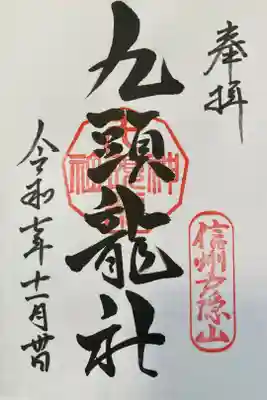 奉拝
信州戸隠山
九頭龍社
令和七年十一月廿日